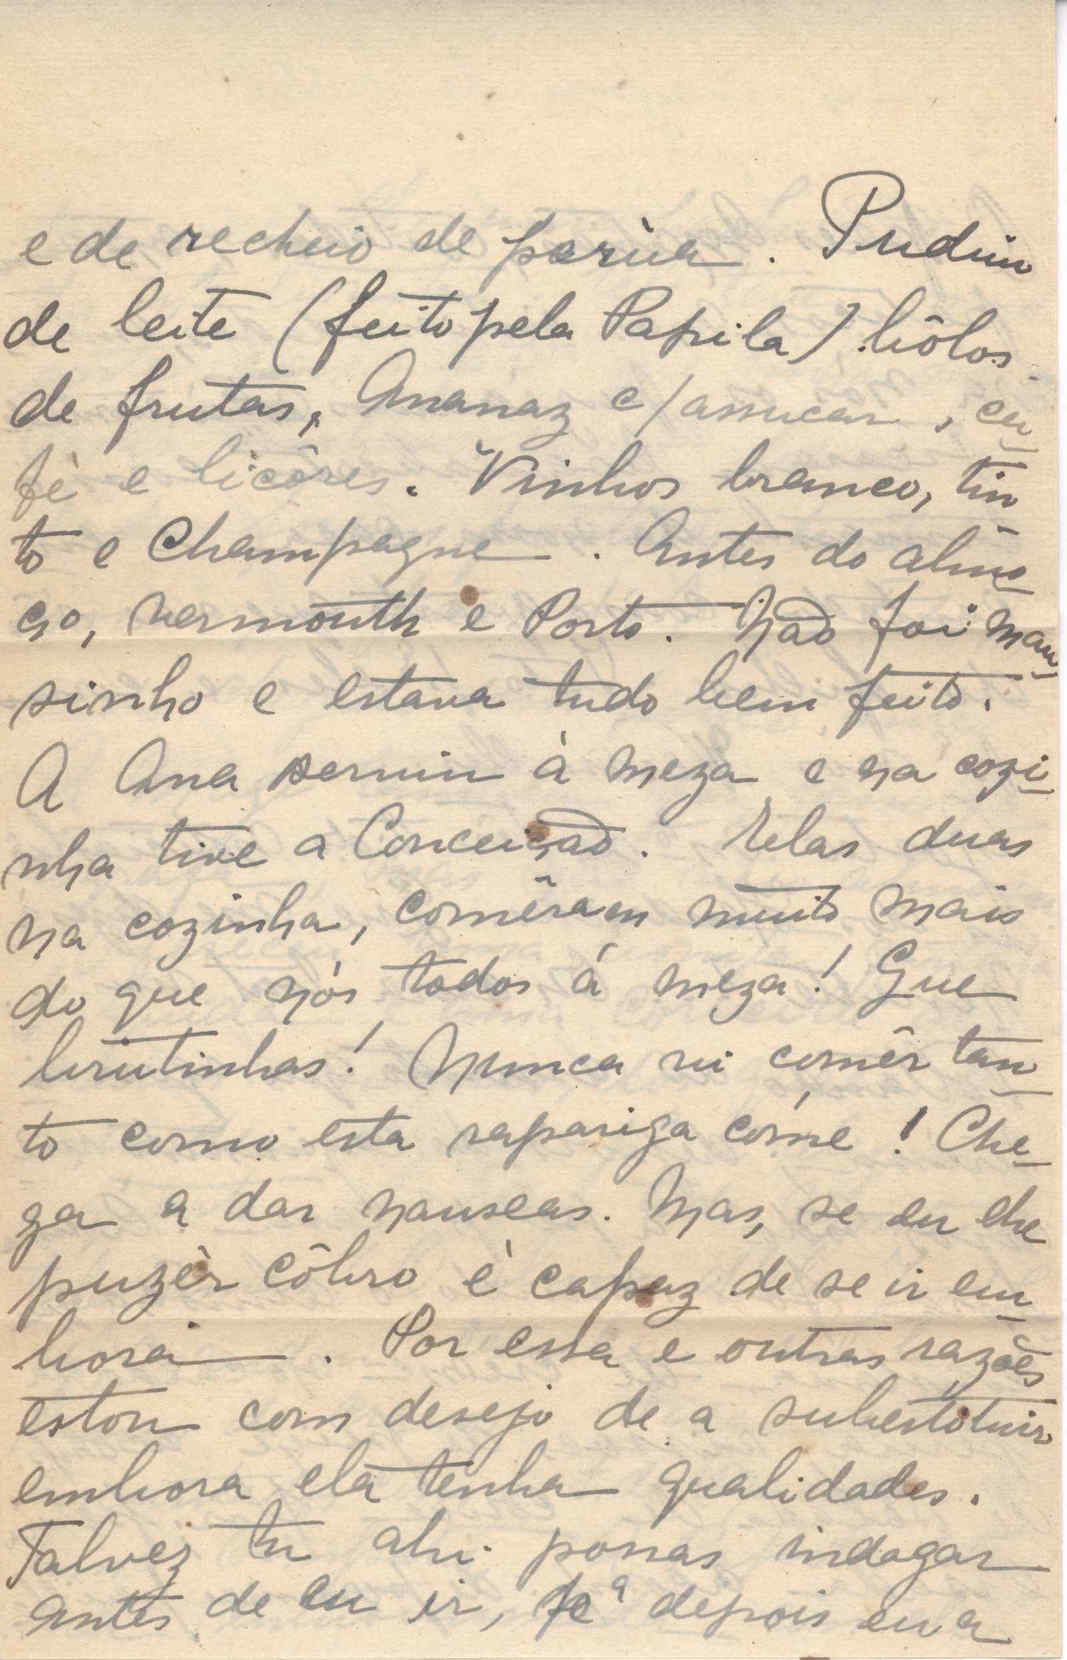 e de recheio de perúa. Pudim
de leite (feito pela Papila) bôlos
de frutas, Ananaz c/assucar, ca-
fè e licôres. Vinhos branco, tin
to e Champagne. Antes do almo-
ço, vermouth e Porto. Não foi mau-
sinho e estava tudo bem feito.
A Ana serviu à meza e na cozi-
nha tive a Conceição. Elas duas
na cozinha, comêram muito mais
do que nós todos á meza! Que
brutinhas! Nunca vi comêr tan-
to como esta rapariga cóme! Che-
ga a dar nauseas. Mas, se eu lhe
puzèr côbro è capaz de se ir em-
bora. Por essa e outras razões
estou com desejo de a substituir
embora ela tenha qualidades.
Talvez tu ahi possas indagar
antes de eu ir, pª depois eu a